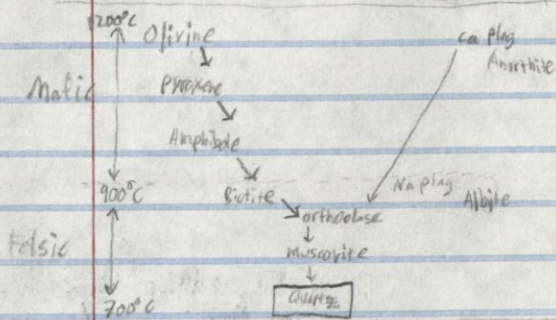 1200°C
Olivine
ca plag
Anorthite
Mafic
Pyroxene
Amphibole
900°C
Biotite
Na plag
Albite
orthoclase
Felsic
muscovite
Quartz
700°C